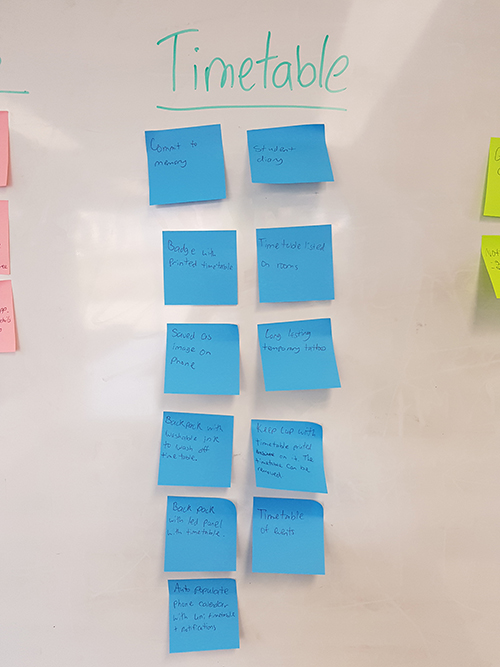 Timetable
Commit to
memory
Student
diary
Badge with
printed timetable
Timetable listed
on rooms
Saved as
image on
phone
Long lasting
temporary tattoo
Backpack with
washable ink
to wash off
timetable
KEEP CUP with
timetable printed
on it. The
timetable can be
removed
Back pack
with led panel
with timetable
Timetable
of habits
Auto populate
phone calendar
with uni timetable
+ notifications